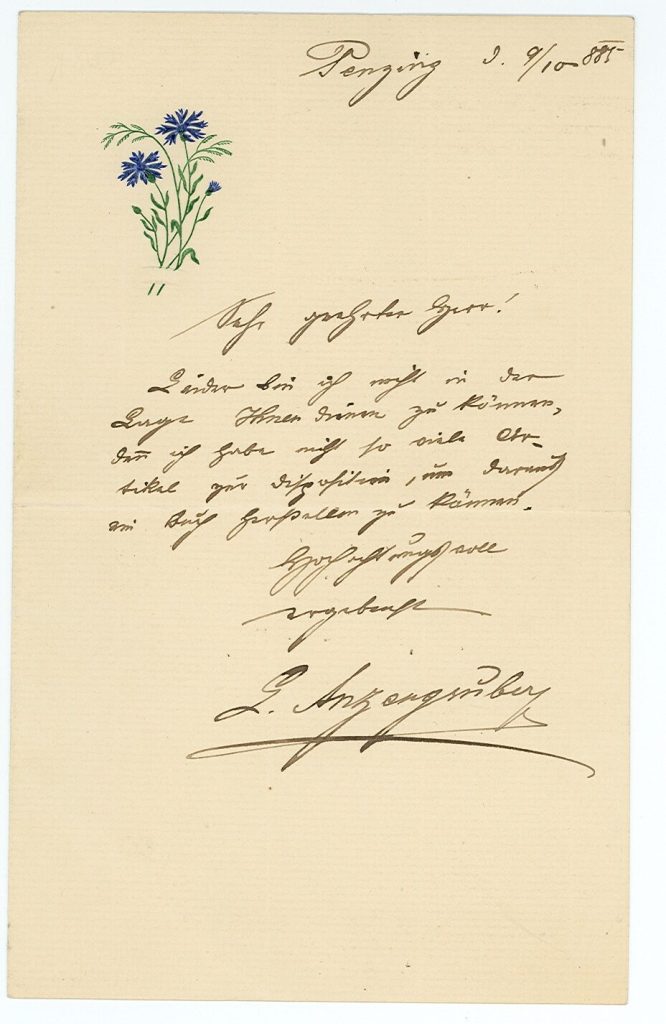 Penzing d. 9/10 885
Sehr geehrter Herr!
Leider bin ich nicht in der
Lage Ihnen dienen zu können,
den̄ ich habe nicht so viele Ar-
tikel zur Disposition, um daraus
ein Buch herstellen zu können.
Hochachtungsvoll
ergebenst
L. Anzengruber